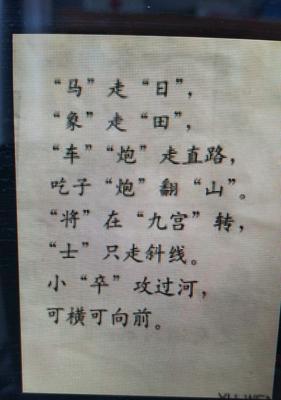 “马”走“日”，
“象”走“田”，
“车”“炮”走直路，
吃子“炮”翻“山”。
“将”在“九宫”转，
“士”只走斜线。
小“卒”攻过河，
可横可向前。